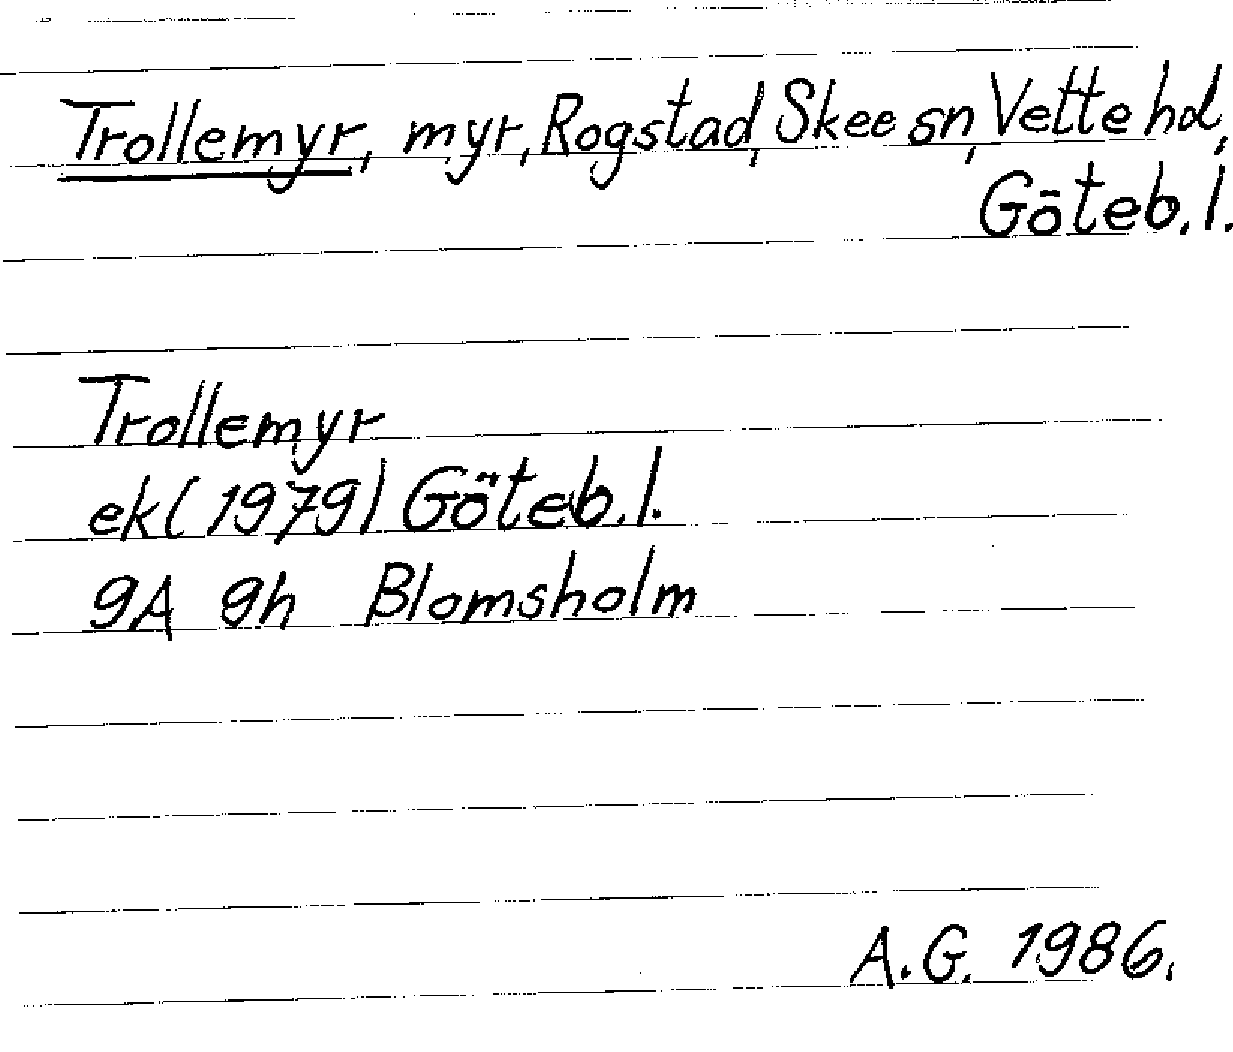 Trollemyr, myr, Rogstad, Skee sn, Vette hd,
Göteb. l.
Trollemyr
ek (1979) Göteb. l.
9A 9h Blomsholm
A.G. 1986.